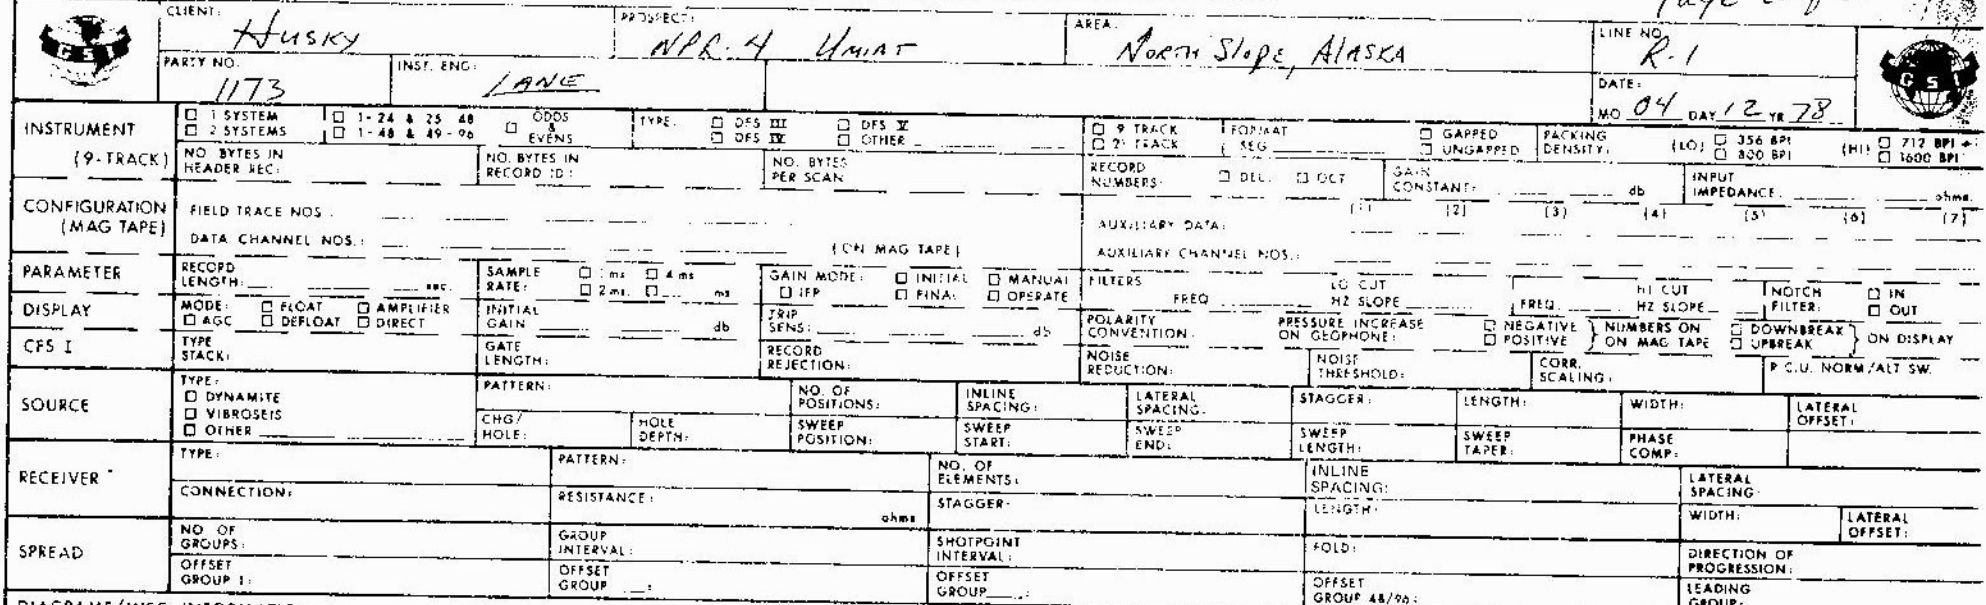 Page 2 of
CLIENT: Husky PROSPECT: NPR-4 Umiat AREA: North Slope, Alaska LINE NO. R-1
GSI
PARTY NO. 1173 INST. ENG: LANE DATE: MO 04 DAY 12 YR 78
GSI
INSTRUMENT (9-TRACK)
☐ 1 SYSTEM ☐ 1-24 & 25-48 ☐ ODDS & EVENS TYPE: ☐ DFS III ☐ DFS V ☐ 9 TRACK FORMAT ☐ GAPPED PACKING DENSITY: (LO) ☐ 356 BPI (HI) ☐ 712 BPI
☐ 2 SYSTEMS ☐ 1-48 & 49-96 ☐ DFS IV ☐ OTHER ☐ 21 TRACK SEG ☐ UNGAPPED ☐ 800 BPI ☐ 1600 BPI
NO. BYTES IN HEADER REC: NO. BYTES IN RECORD ID: NO. BYTES PER SCAN RECORD NUMBERS: ☐ DEC. ☐ OCT GAIN CONSTANT: db INPUT IMPEDANCE. ohms.
CONFIGURATION (MAG TAPE)
FIELD TRACE NOS.: AUXILIARY DATA: (1) (2) (3) (4) (5) (6) (7)
DATA CHANNEL NOS.: (ON MAG TAPE) AUXILIARY CHANNEL NOS.:
PARAMETER RECORD LENGTH: sec. SAMPLE RATE: ☐ 1 ms ☐ 4 ms ☐ 2 ms. ☐ ms GAIN MODE: ☐ INITIAL ☐ MANUAL ☐ IFP ☐ FINAL ☐ OPERATE FILTERS LO CUT FREQ HZ SLOPE HI CUT FREQ. HZ SLOPE NOTCH FILTER: ☐ IN ☐ OUT
DISPLAY MODE: ☐ FLOAT ☐ AMPLIFIER ☐ AGC ☐ DEFLOAT ☐ DIRECT INITIAL GAIN db TRIP SENS: db POLARITY CONVENTION: PRESSURE INCREASE ON GEOPHONE: ☐ NEGATIVE ☐ POSITIVE } NUMBERS ON MAG TAPE ☐ DOWNBREAK ☐ UPBREAK } ON DISPLAY
CFS I TYPE STACK: GATE LENGTH: RECORD REJECTION: NOISE REDUCTION: NOISE THRESHOLD: CORR. SCALING: R.C.U. NORM/ALT SW.
SOURCE
TYPE: ☐ DYNAMITE ☐ VIBROSEIS ☐ OTHER
PATTERN: NO. OF POSITIONS: INLINE SPACING: LATERAL SPACING: STAGGER: LENGTH: WIDTH: LATERAL OFFSET:
CHG/HOLE: HOLE DEPTH: SWEEP POSITION: SWEEP START: SWEEP END: SWEEP LENGTH: SWEEP TAPER: PHASE COMP:
RECEIVER
TYPE: PATTERN: NO. OF ELEMENTS: INLINE SPACING: LATERAL SPACING:
CONNECTION: RESISTANCE: ohms STAGGER: LENGTH: WIDTH: LATERAL OFFSET:
SPREAD
NO. OF GROUPS: GROUP INTERVAL: SHOTPOINT INTERVAL: FOLD: DIRECTION OF PROGRESSION:
OFFSET GROUP 1: OFFSET GROUP : OFFSET GROUP : OFFSET GROUP 48/96: LEADING GROUP: